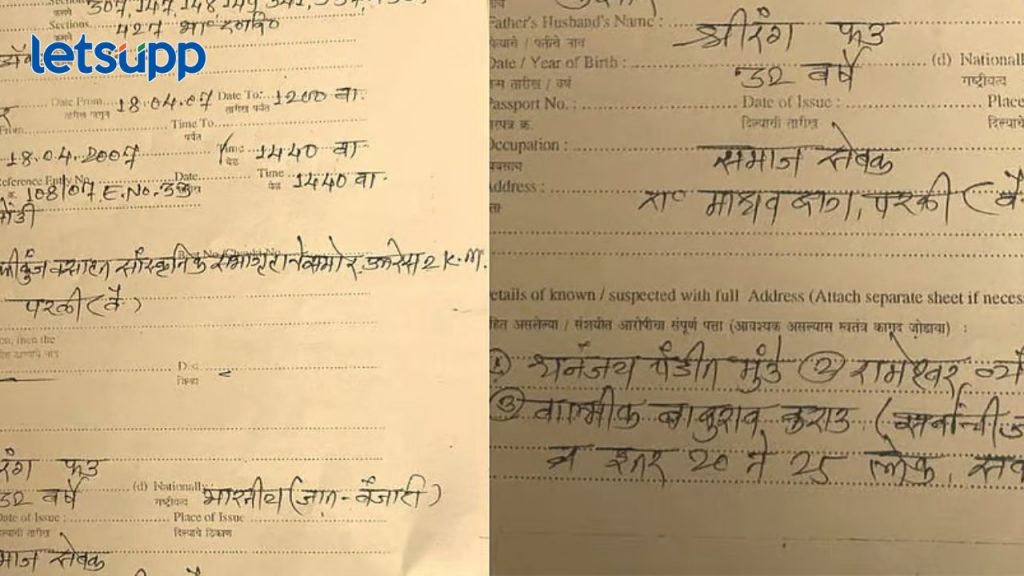 307, 147, 148, 149, 341,
Sections
427 भा द वि
letsupp
Date From 18.04.07 Date To: 1200 वा.
तारीख पासून तारीख पर्यंत
From Time To
पर्यंत
18.04.2007 Time 1440 वा.
वेळ
Reference Entry No. Date Time 1440 वा.
क्र. 108/07, E.No. वेळ
सांस्कृतिक 2 K.M.
परळी (वै)
on, then the
Dist
जिल्हा
रंग फड
32 वर्षे (d) Nationali भारतीय (जात - वंजारी)
राष्ट्रीयत्व
Date of Issue : Place of Issue
दिल्याची तारीख दिल्याचे ठिकाण
माज सेवक
Father's Husband's Name :
श्रीरंग फड
पित्याचे / पतीचे नाव
Date / Year of Birth : 32 वर्षे (d) Nationali
जन्म तारीख / वर्ष राष्ट्रीयत्व
Passport No. : Date of Issue : Place
पारपत्र क्र. दिल्याची तारीख दिल्याचे
Occupation : समाज सेवक
व्यवसाय
Address : रा॰ माधव बाग, परळी (वै
पत्ता
Details of known / suspected with full Address (Attach separate sheet if neces
माहित असलेल्या / संशयीत आरोपीचा संपूर्ण पत्ता (आवश्यक असल्यास स्वतंत्र कागद जोडावा) :
① धनंजय पंडीत मुंडे ② रामेश्वर
③ वाल्मीक बाबुराव कराड (सर्वांची
व इतर 20 ते 25 लोक,